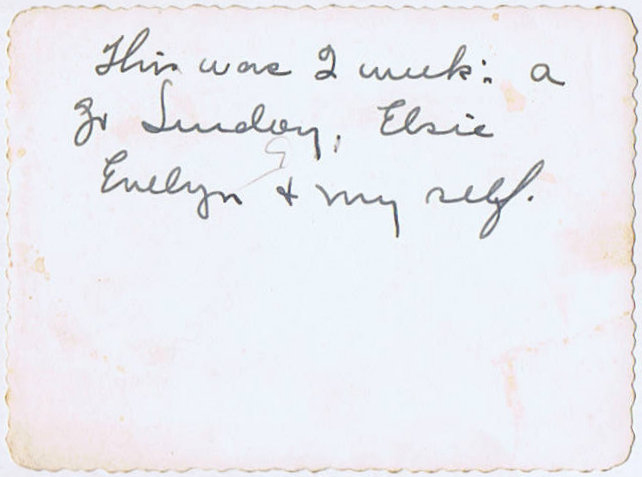 This was 2 week: a
go Sunday, Elsie
Evelyn & my self.